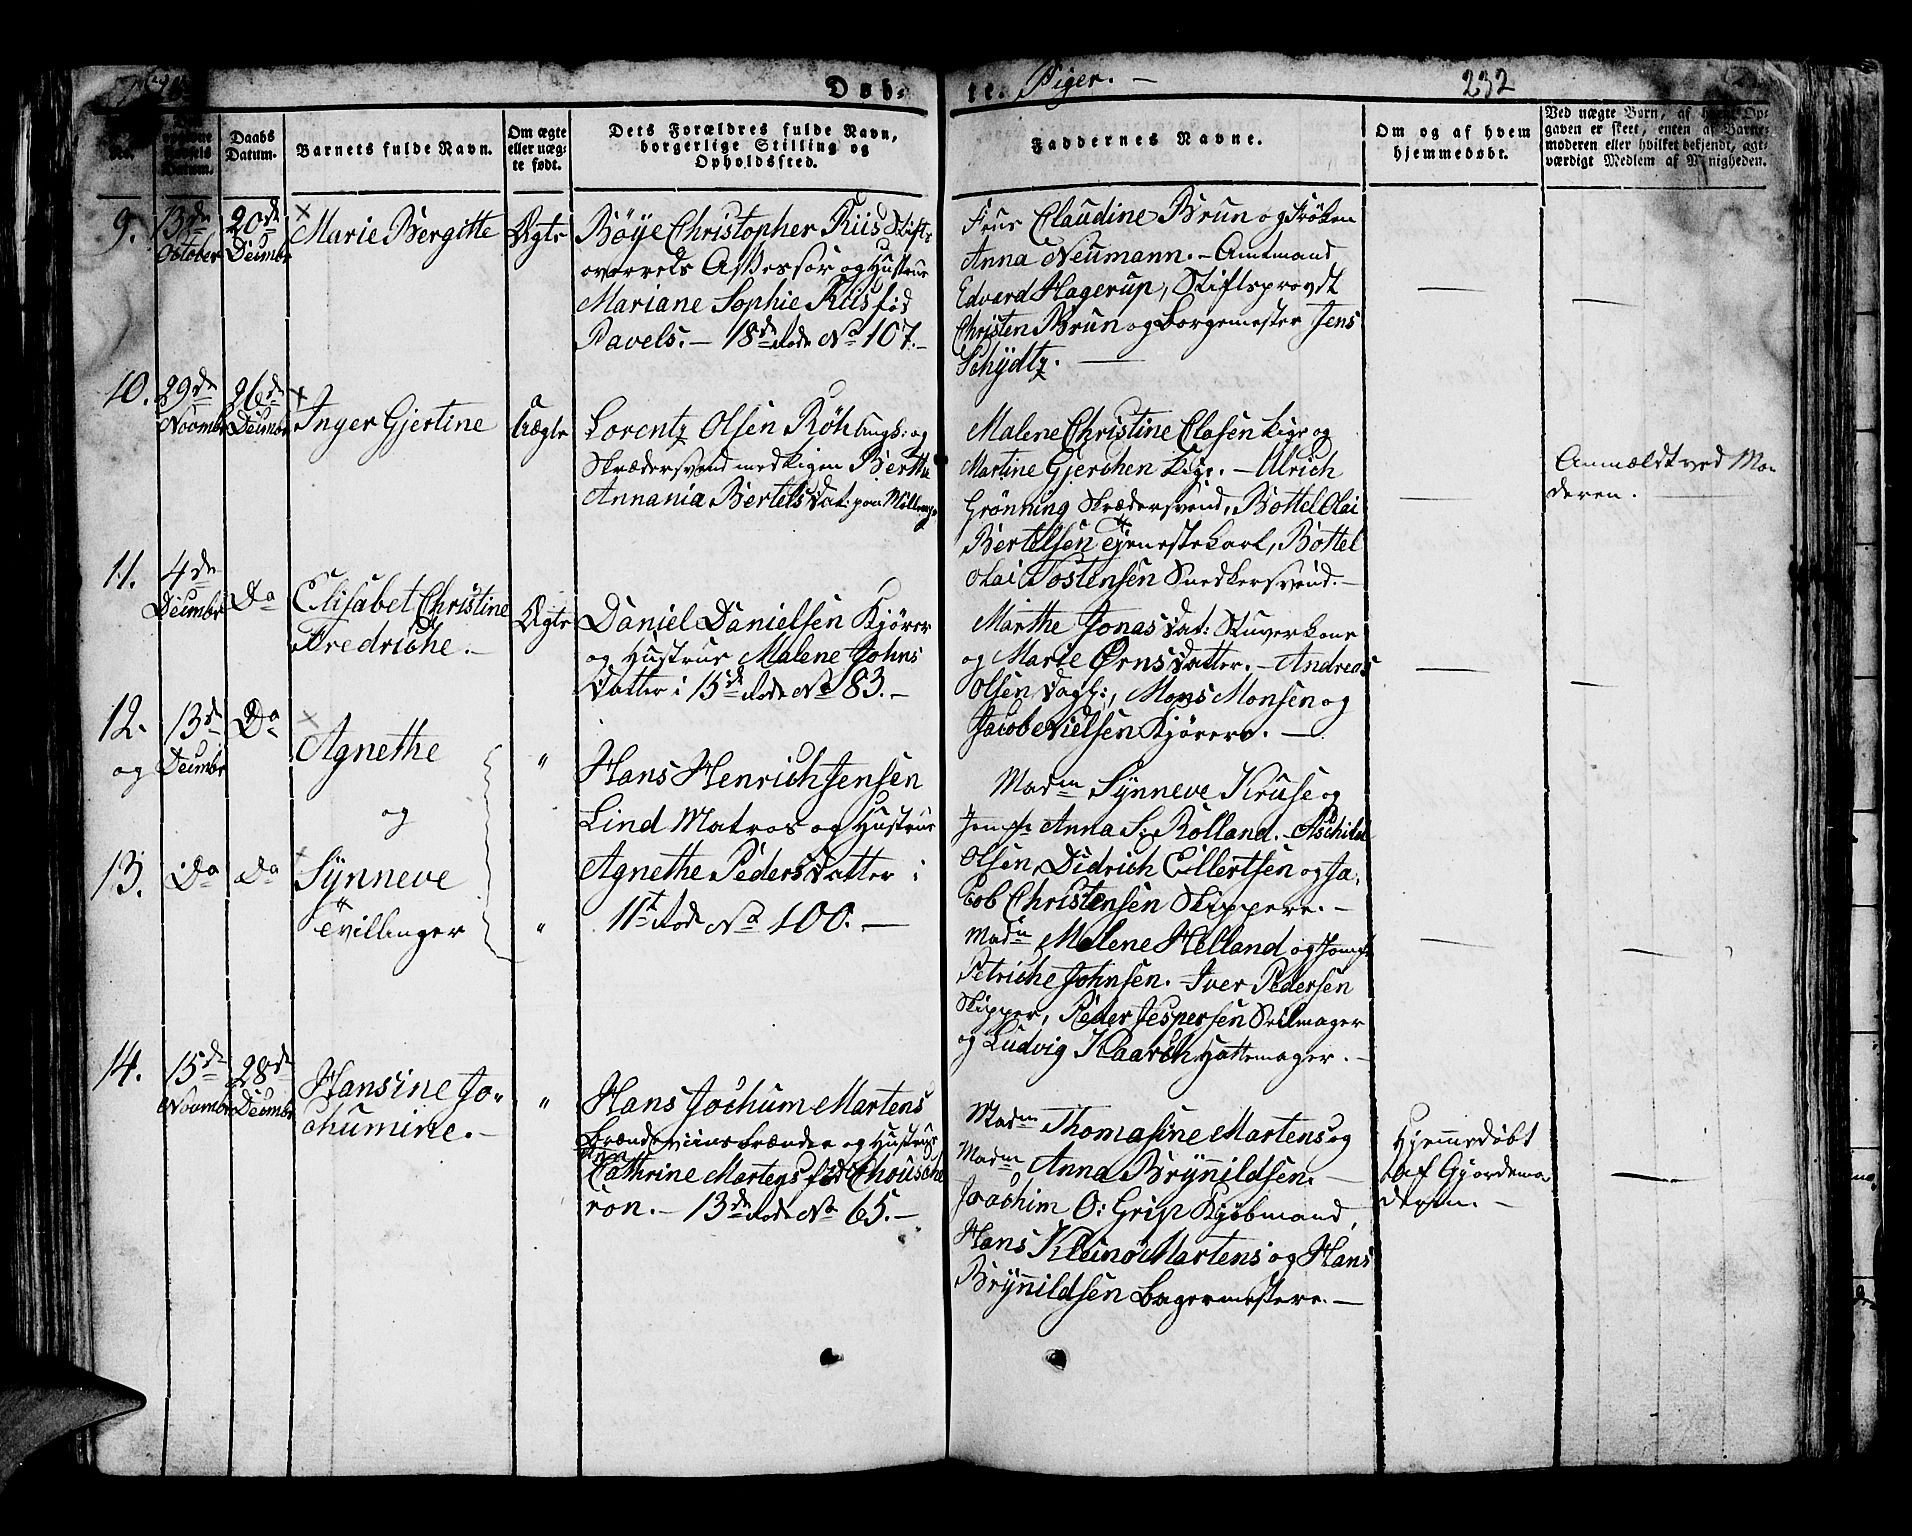 Døb-
te. Piger. —
232
Daabs
Datum.
Barnets fulde Navn.
Om ægte
eller uæg-
te født.
Dets Forældres fulde Navn,
borgerlige Stilling og
Opholdssted.
Faddernes Navne.
Om og af hvem
hjemmedøbt.
Ved uægte Børn, af hvem Op-
gaven er skeet, enten af Barne-
moderen eller hvilket bekjendt, agt-
værdigt Medlem af Menigheden.
9.
13de
October
20de
Decembr
Marie Bergitte
Ægte
Böÿe Christopher Riis Stifts
overrets Assessor og Hustrue
Mariane Sophie Riis fød
Pavels. — 18de Rode No 107. —
Frue Claudine Brun og Frøken
Anna Neumann. — Amtmand
Edvard Hagerup, Stiftsprovst
Christen Brun og Borgemester Jens
Schÿdtz. —
10.
29de
Novmbr
26de
Decmbr
Inger Gjertine
Uægte
Lorentz Olsen Röh Ungk: og
Skrædersvend med Pigen Berthe
Annania Bertels Dat: paa
Malene Christine Clasen Pige og
Martine Gjerchen Pige. — Ulrich
Grønning Skrædersvend, Bottel Olai
Bertelsen Tjenestekarl, Bottel
Olai Tostensen Snedkersvend. —
Anmældt ved Mo-
deren. —
11.
4de
Decmbr
Do
Elisabet Christine
Fredriche. —
Ægte
Daniel Danielsen Kjører
og Hustrue Malene Johns
Datter i 15de Rode No 83. —
Marthe Jonas Dat: Stuverkone
og Marie Ørns Datter. — Andreas
Olsen Dagk:, Mons Monsen og
Jacob Nielsen Kjørere. —
12.
og
13de
Decmbr
Do
Agnethe
og
"
Hans Henrich Jensen
Lind Matros og Hustrue
Agnethe Peders Datter i
11te Rode No 100. —
Madm Sÿnneve Kruse og
Jomfr Anna S: Rolland. — Aschild
Olsen, Didrich Eilertsen og Ja-
cob Christensen Skippere. —
13.
Do
Do
Sÿnneve
Tvillinger
"
Madm Malene Helland og Jomfr
Petriche Johnsen. — Iver Pedersen
Skipper, Peder Jespersen Seilmager
og Ludvig Kaarch Hattemager. —
14.
15de
Novmbr
28de
Decmbr
Hansine Jo-
chumine. —
"
Hans Jochum Martens
Brændeviinsbrænder og Hustrue
Cathrine Martens fød Chousche
ron. — 13de Rode No 65. —
Madm Thomasine Martens og
Madm Anna Brÿnildsen. —
Joachim O: Grip Kjøbmand,
Hans Kleinø Martens og Hans
Brÿnildsen Bagermestere. —
Hjemmedøbt
af Gjordemo-
deren. —